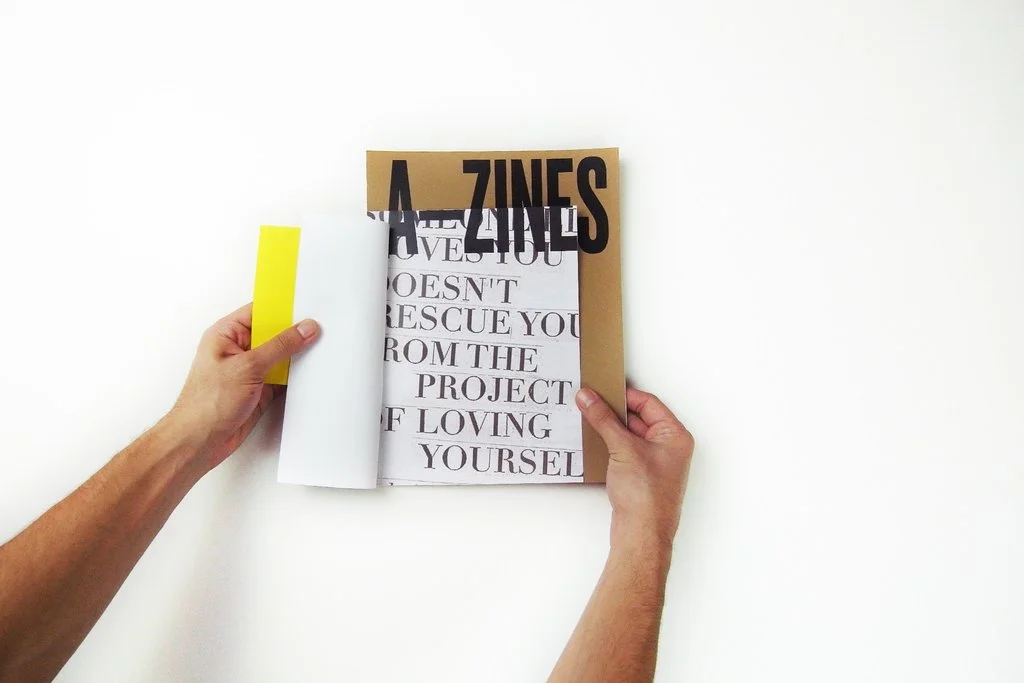 A_ZINES
OVES YOU
OESN'T
RESCUE YOU
ROM THE
PROJECT
F LOVING
YOURSEL